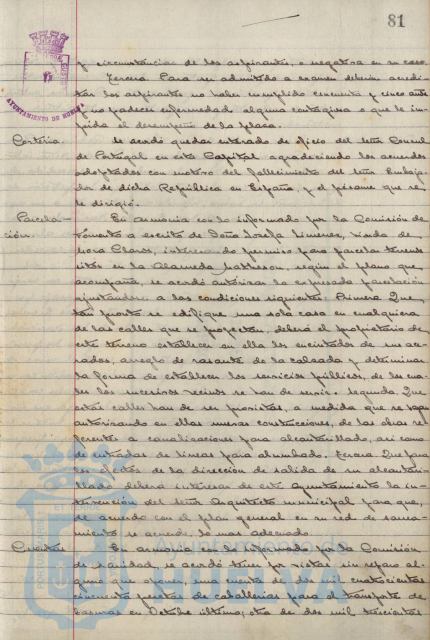 81
AYUNTAMIENTO DE HUELVA
y circunstancias de los aspirantes, o negativa en su caso.
Tercera. Para ser admitido a examen deberán acredi-
tar los aspirantes no haber cumplido cincuenta y cinco años
y no padecer enfermedad alguna contagiosa o que le im-
pida el desempeño de la plaza.
Cortesía. Se acordó quedar enterado de oficio del Señor Consul
de Portugal en esta Capital agradeciendo los acuerdos
adoptados con motivo del fallecimiento del Señor Embaja-
dor de dicha República en España, y el pésame que se
le dirigió.
Parcela-
ción. En armonía con lo informado por la Comisión de
Fomento a escrito de Doña Josefa Jimenez, viuda de
Mora Claros, interesando permiso para parcelar terrenos
sitos en la Alameda Sundheim, según el plano que
acompaña, se acordó autorizar la expresada parcelación
ajustandose a las condiciones siguientes: Primera Que
tan pronto se edifique una sola casa en cualquiera
de las calles que se proyectan, deberá el propietario de
este terreno establecer en ella los encintados de sus ace-
rados, arreglo de rasante de la calzada y determinar
la forma de establecer los servicios públicos, de los cua-
les los inversores vecinos se han de servir. Segunda Que
estas calles han de ser provistas, a medida que se vayan
autorizando en ellas nuevas construcciones, de las obras re-
ferentes a canalizaciones para alcantarillado, así como
de entradas de lineas para alumbrado. Tercera Que para
los efectos de la dirección de salida de su alcantari-
llado deberá interesar de este Ayuntamiento la in-
tervención del Señor Arquitecto municipal para que,
de acuerdo con el plan general en su red de sanea-
miento se acuerde lo mas adecuado.
Cuentas En armonía con lo informado por la Comisión
de Sanidad, se acordó tener por vistas sin reparo al-
guno que oponer, una cuenta de dos mil cuatrocientas
cincuenta pesetas de caballerias para el transporte de
carnes en Octubre último; otra de dos mil trescientas